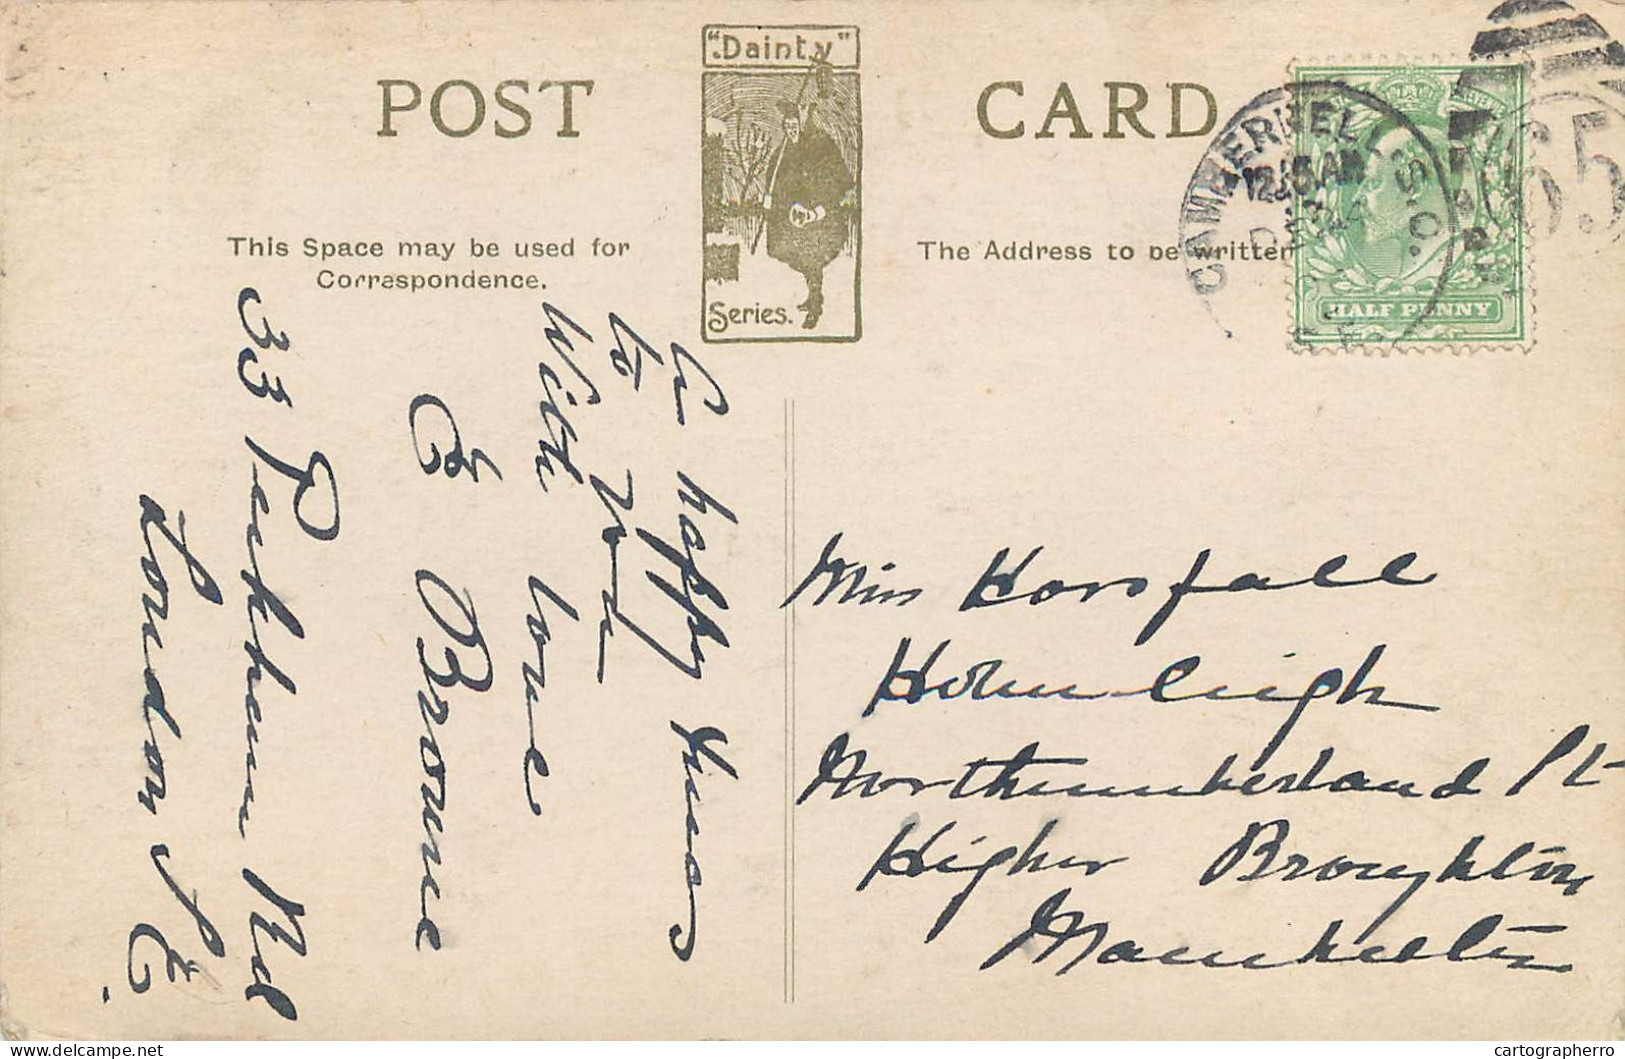 POST CARD
"Dainty"
Series.
This Space may be used for
Correspondence.
The Address to be written
CAMBERWELL S.O.
12.15 AM
65
HALF PENNY
A happy Xmas
to you
With love
E Browne
33 Peckham Rd
London S.E.
Miss Horsfall
Holmleigh
Northumberland St
Higher Broughton
Manchester
cartographerro